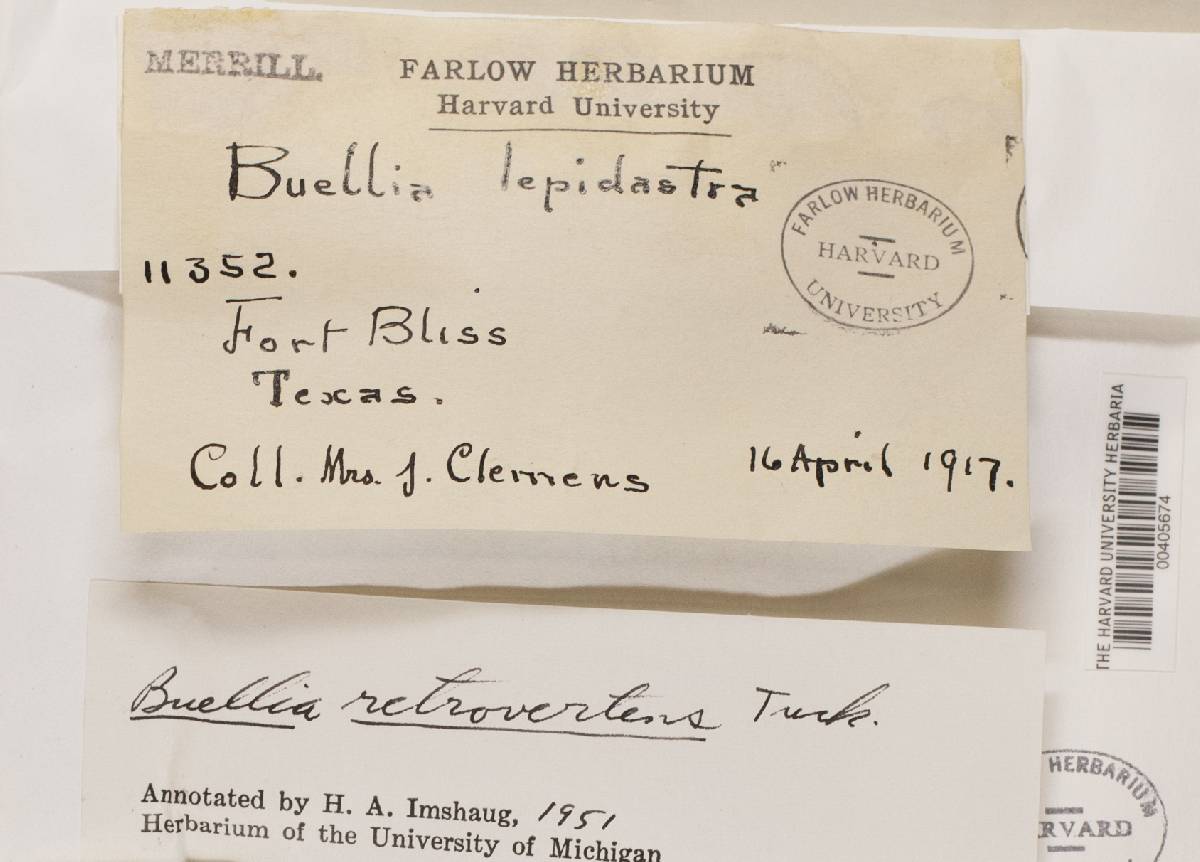 MERRILL.
FARLOW HERBARIUM
Harvard University
Buellia lepidastra
FARLOW HERBARIUM
HARVARD
UNIVERSITY
11352.
Fort Bliss
Texas.
Coll. Mrs. J. Clemens 16 April 1917.
THE HARVARD UNIVERSITY HERBARIA
00405674
Buellia retrovertens Tuck.
Annotated by H. A. Imshaug, 1951
Herbarium of the University of Michigan
HERBARIUM
RVARD